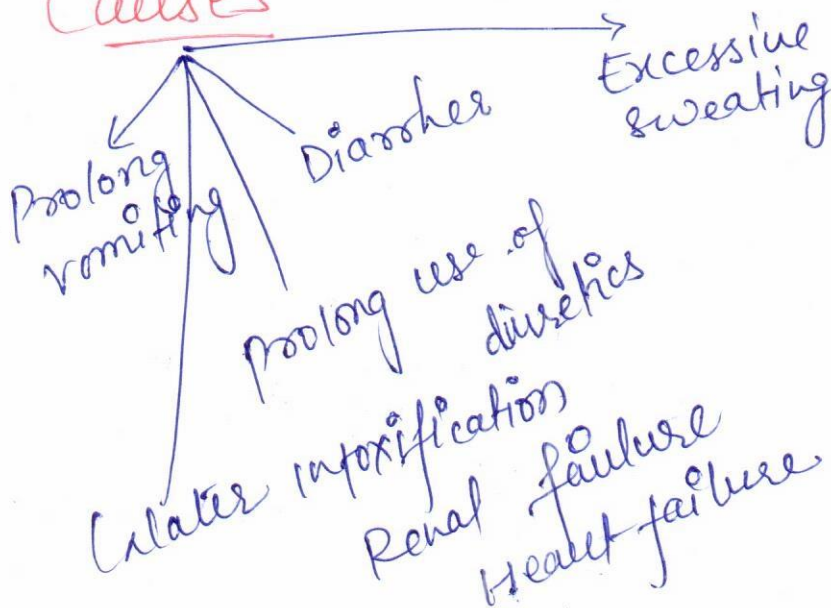 Causes
Excessive
sweating
Diarrhea
Prolong
vomiting
prolong use of
diuretics
Water intoxification
Renal failure
Heart failure